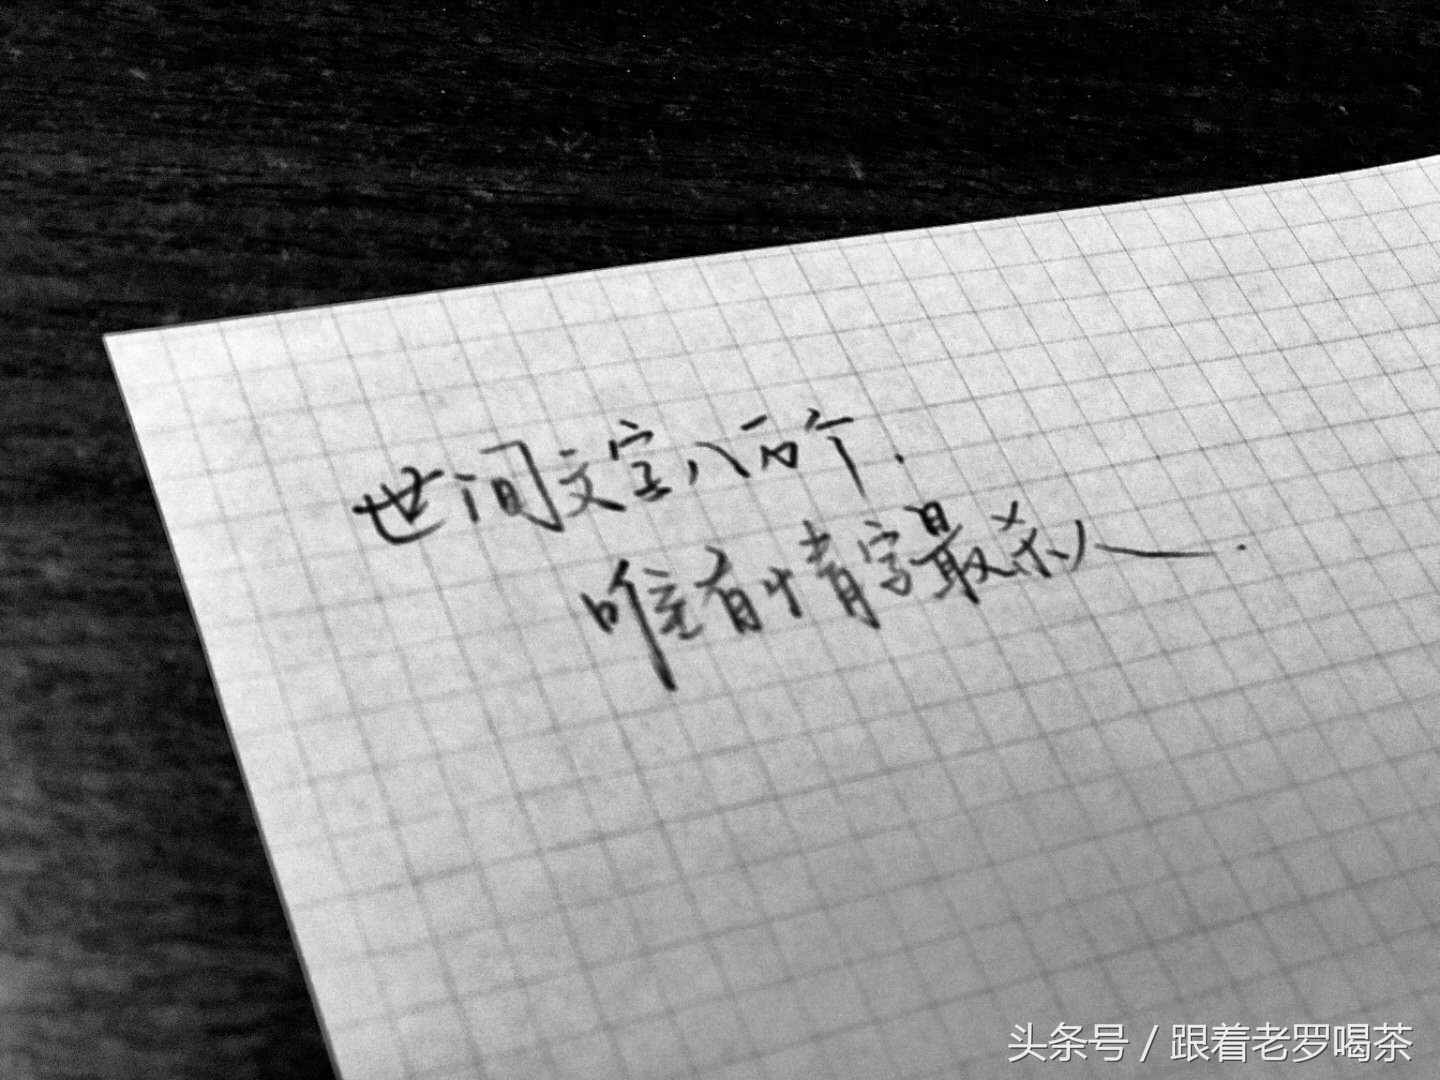 世间文字八百个.
唯有情字最杀人.
头条号 / 跟着老罗喝茶